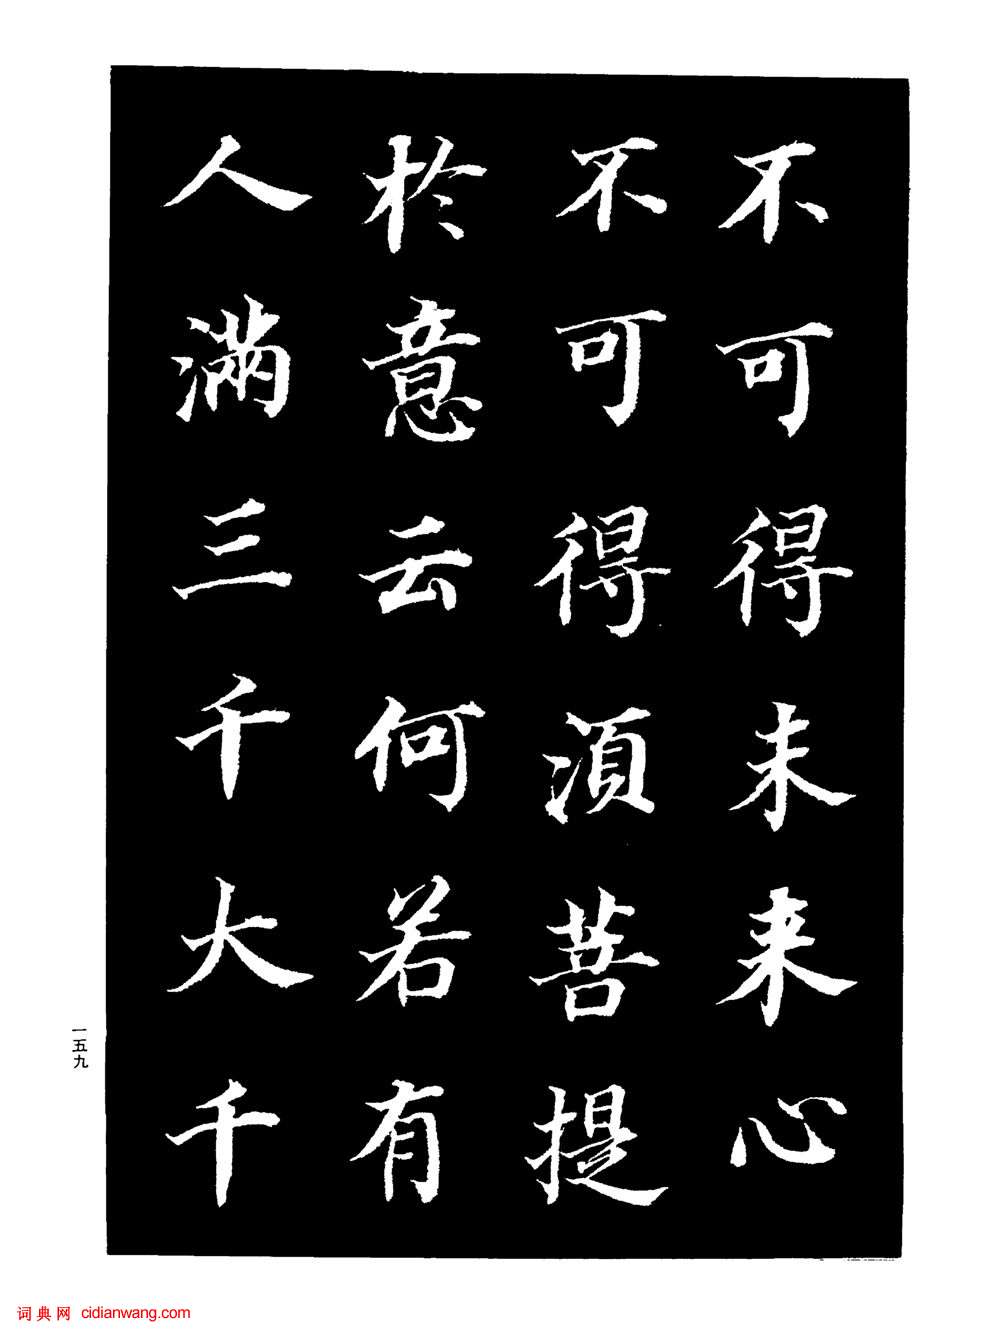 不可得未来心
不可得湏菩提
於意云何若有
人滿三千大千
一五九
词典网 cidianwang.com